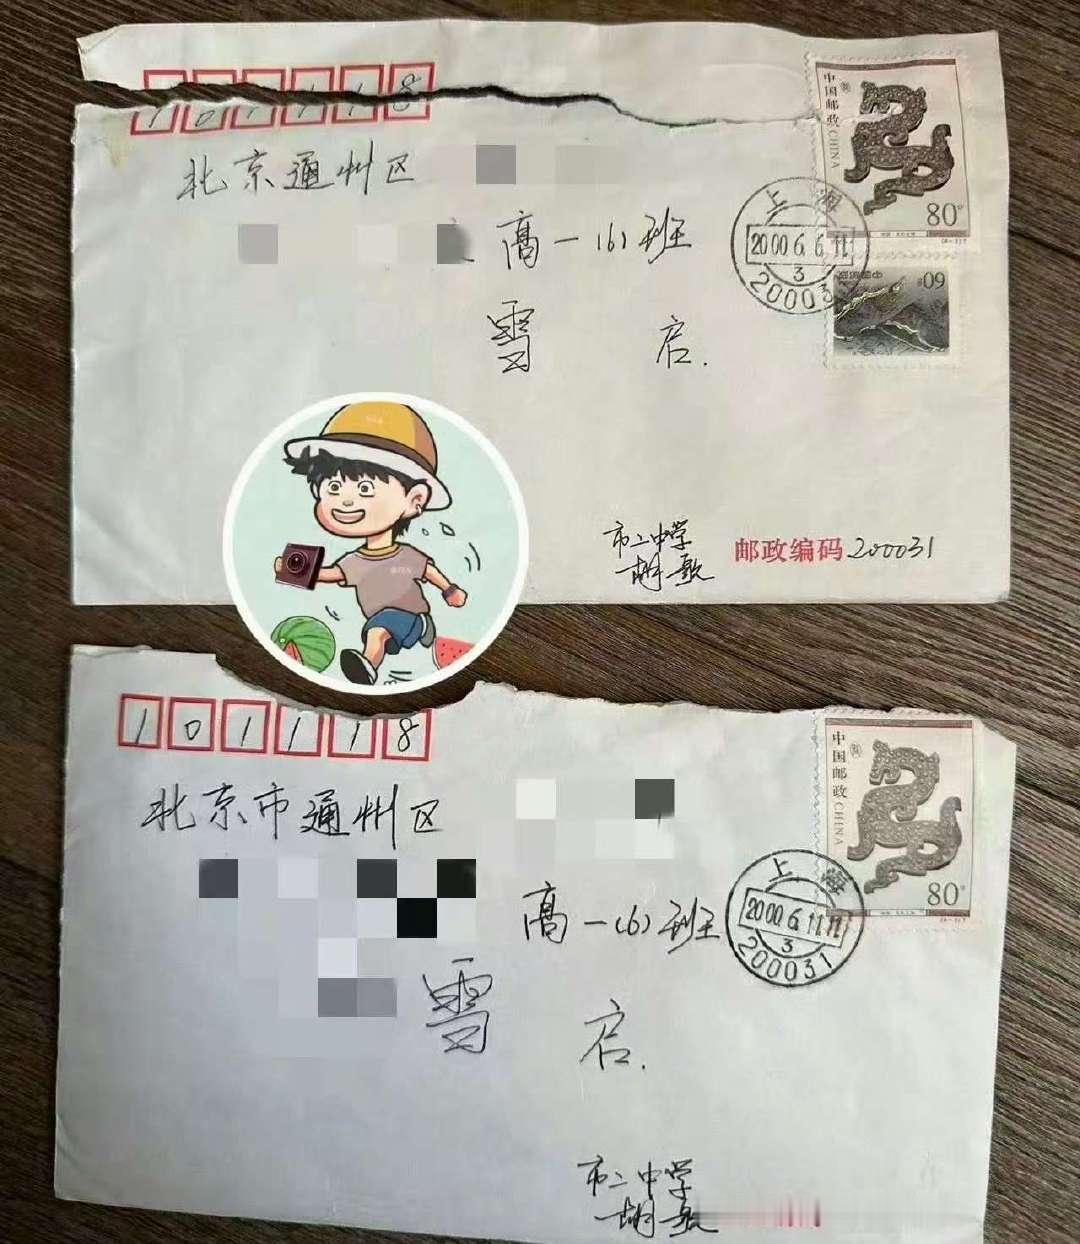 101118
北京通州区
高一(6)班
雪 启.
市二中学
胡歌
邮政编码 200031
中国邮政 CHINA
80分
中国邮政
60分
上海
2000.6.6.11
3
200031
101118
北京市通州区
高一(6)班
雪 启.
市二中学
胡歌
中国邮政 CHINA
80分
上海
2000.6.11.11
3
200031